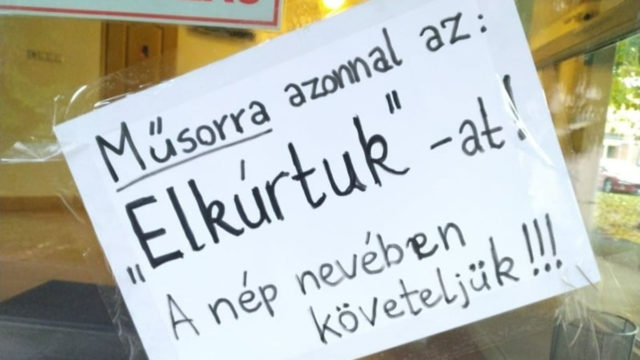 Műsorra azonnal az:
„Elkúrtuk"-at!
A nép nevében
követeljük!!!